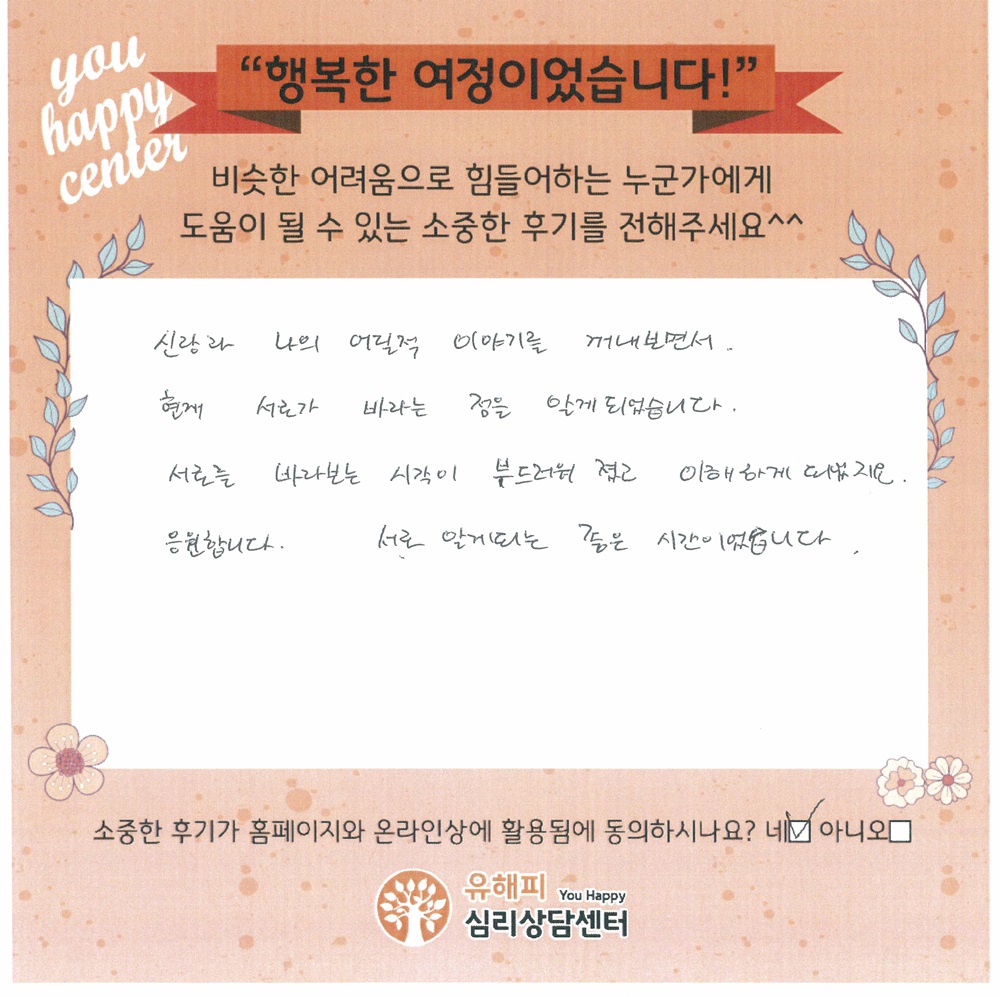 you
happy
center
“행복한 여정이었습니다!”
비슷한 어려움으로 힘들어하는 누군가에게
도움이 될 수 있는 소중한 후기를 전해주세요^^
신랑과 나의 어릴적 이야기를 꺼내보면서.
현재 서로가 바라는 점을 알게되었습니다.
서로를 바라보는 시각이 부드러워 졌고 이해하게 되었지요.
응원합니다. 서로 알게되는 좋은 시간이었습니다.
소중한 후기가 홈페이지와 온라인상에 활용됨에 동의하시나요? 네 아니오
유해피 You Happy
심리상담센터